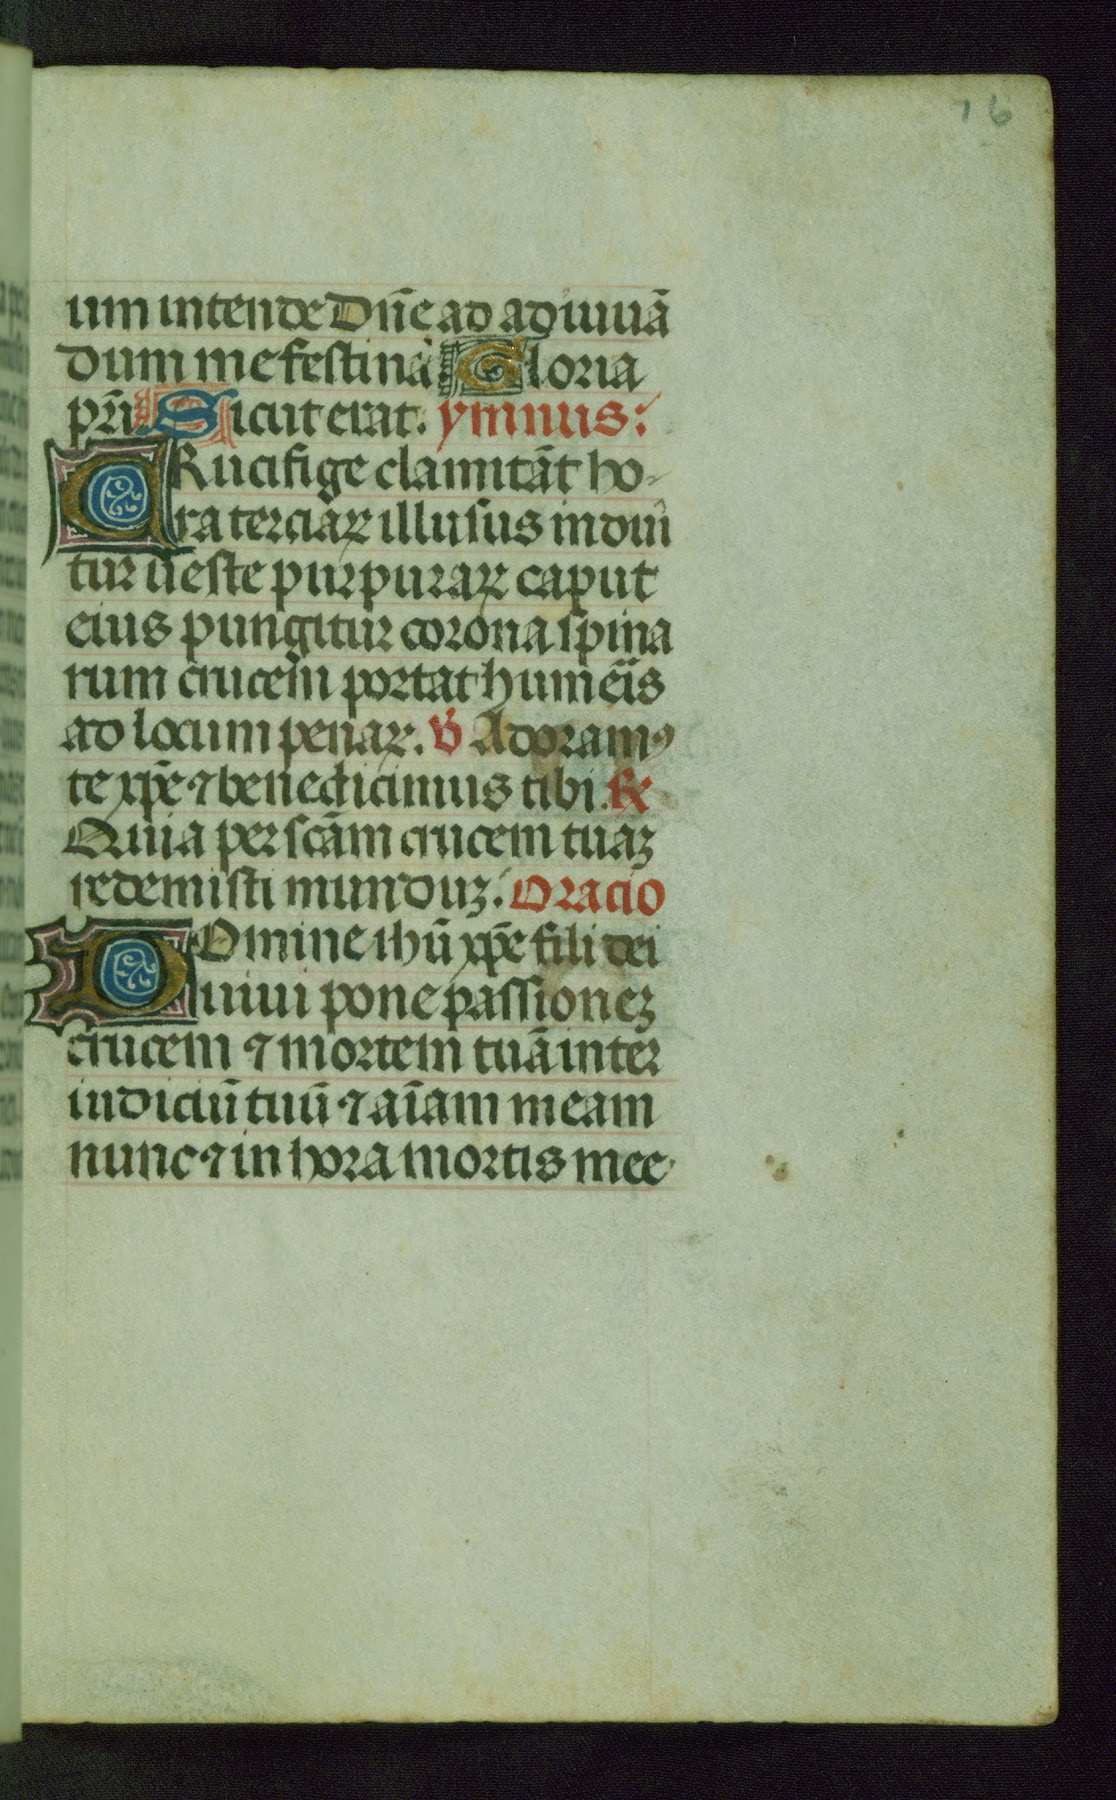 16
um intende Dñe ad adiuuã
dum me festina Gloria
pr̃i Sicut erat. ymnus:
CRucifige clamitãt ho-
ra terciaꝝ illusus induı̃
tur ueste purpuraꝝ caput
eius pungitur corona spina
rum crucem portat humeis
ad locum penaꝝ. ℣ Adoramꝰ
te xp̃e ⁊ benedicimus tibi. ℟
Quia per scãm crucem tuaʒ
redemisti munduʒ. Oracio
DOmine ihũ xp̃e fili dei
uiui pone passioneʒ
crucem ⁊ mortem tuã inter
iudiciũ tuũ ⁊ aı̃am meam
nunc ⁊ in hora mortis mee